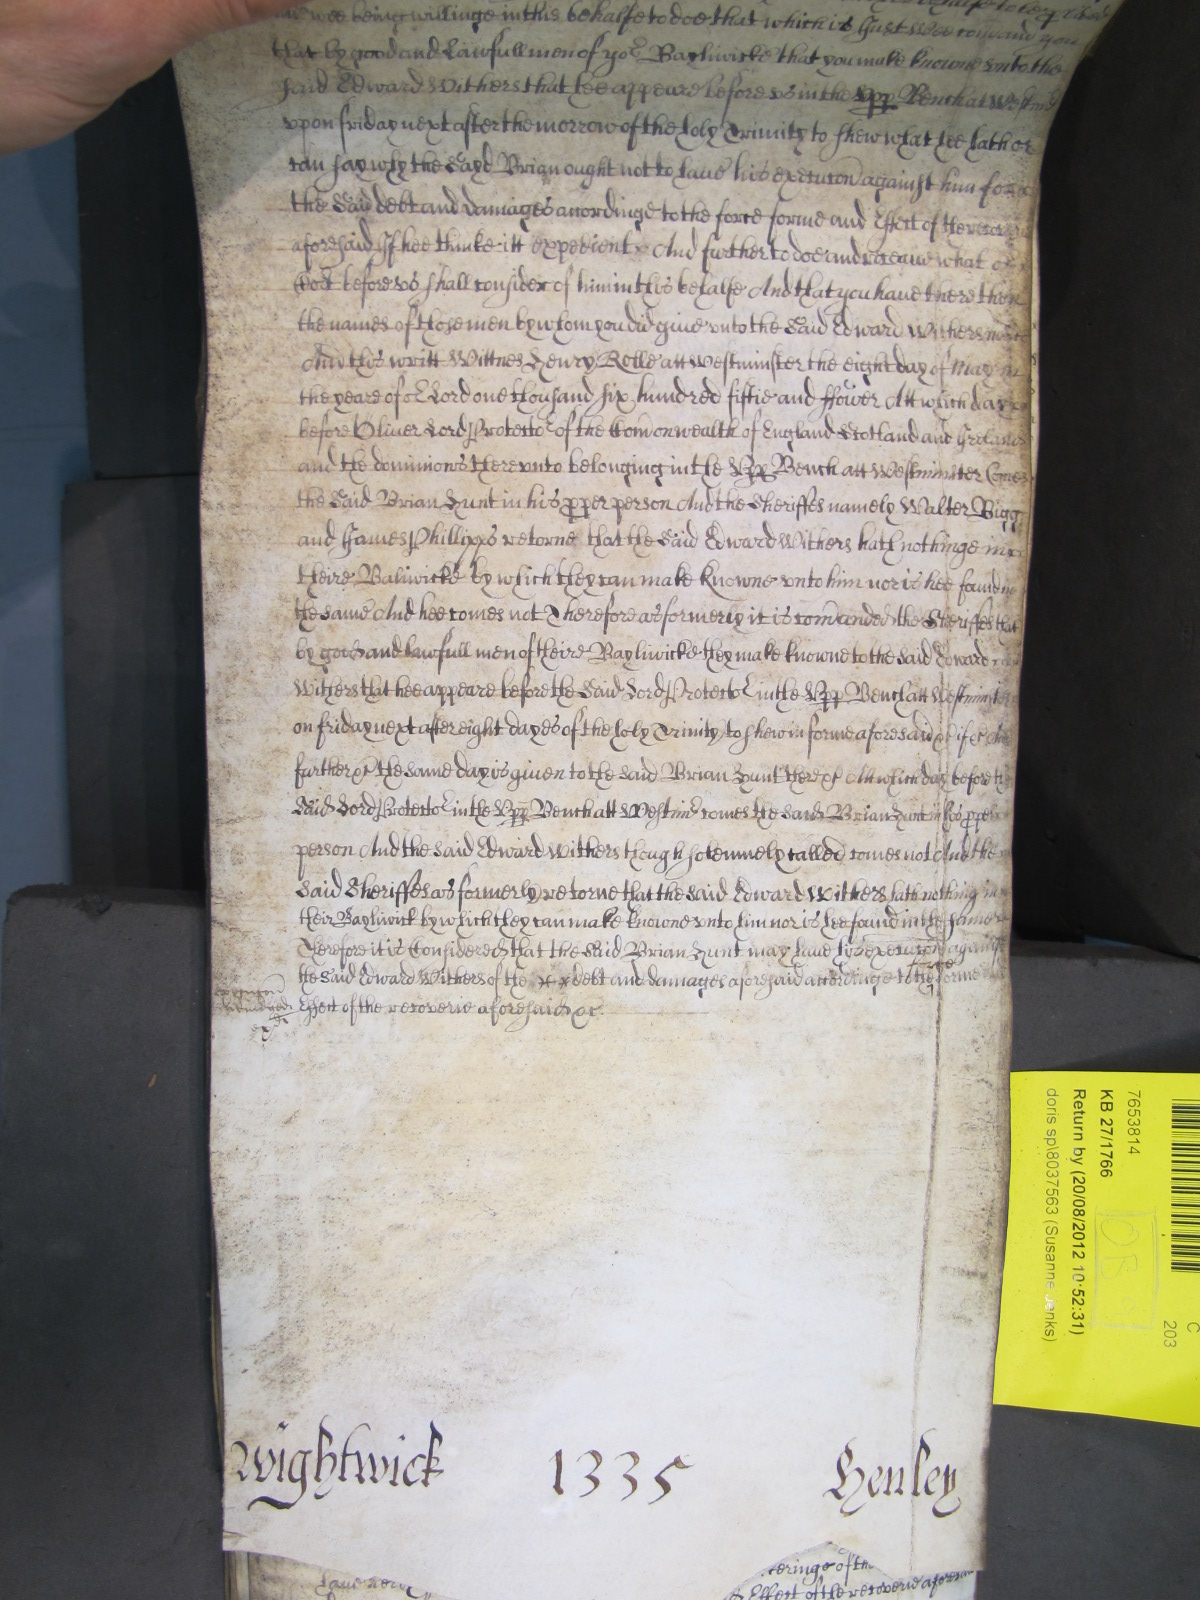 and wee being willinge in this behalfe to doe that which is Just Wee comand you
that by good and Lawfull men of yor Bayliwicke that you make knowne unto the
said Edward Withers that hee appeare before us in the Upp Bench at Westmr
upon friday next after the morrow of the holy Trinity to shew what hee hath or
can say why the Sayd Brian ought not to have his execucon against him for
the Said debt and damages accordinge to the force forme and Effect of the recovery
aforesaid If hee thinke itt expedient And further to doe and receave what or
Cort before us shall consider of him in this behalfe And that you have there then
the names of those men by whom you did give unto the Said Edward Withers
And this writt Wittnes Henry Rolle att Westminster the eight day of May in
the yeare of or Lord one thousand six hundred fiftie and ffower Att which day
before Oliver Lord Protector of the Comonwealth of England Scotland and Ireland
and the dominions thereunto belonging in the Upp Bench att Westminster Comes
the Said Brian Hunt in his pper person And the Sheriffes namely Walter Bigg
and James Phillipps retorne that the Said Edward Withers hath nothinge in
theire Baliwicke by which they can make Knowne unto him nor is hee found in
the same And hee comes not Therefore as formerly it is comanded the Sheriffes that
by good and lawfull men of theire Bayliwicke they make knowne to the Said Edward
Withers that hee appeare before the Said Lord Protector in the Upp Bench att Westminster
on friday next after eight dayes of the holy Trinity to shew in forme aforesaid if &c And
further &c the same day is given to the Said Brian Hunt there &c Att which day before the
Said Lord Protector in the Upp Bench att Westmr comes the Said Brian Hunt in his pper
person And the Said Edward Withers though solemnely called comes not And the
Said Sheriffes as formerly retorne that the Said Edward Withers hath nothing in
their Bayliwick by which they can make knowne unto him nor is hee found in the same
Therefore it is Considered that the Said Brian Hunt may have his execucon against
the Said Edward Withers of the debt and damages aforesaid accordinge to the force forme
Effect of the recoverie aforesaid &c
Wightwick 1335 Henley
have
eringe of the
& Effect of the recoverie aforesaid
7653814
KB 27/1766
Return by (20/08/2012 10:52:31)
doris sp\8037563 (Susanne Jenks)
C
203